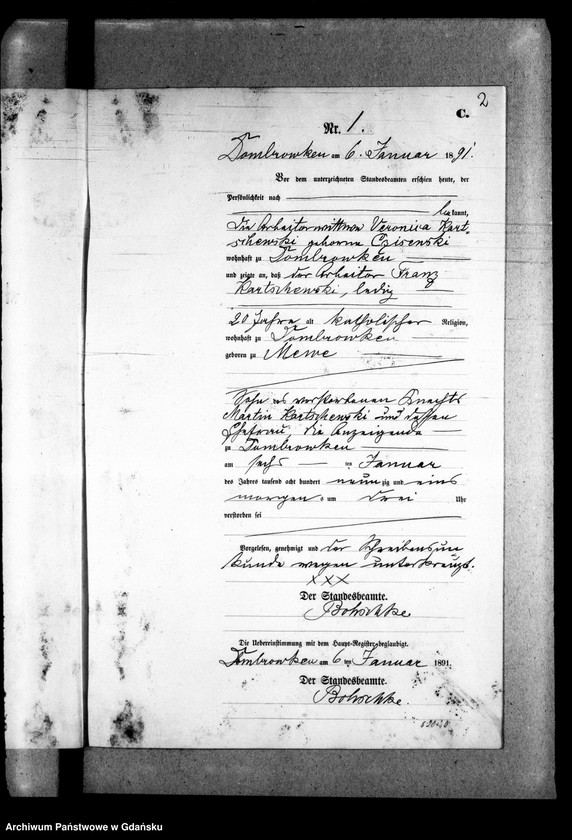 2
C.
Nr. 1.
Dombrowken am 6. Januar 1891.
Vor dem unterzeichneten Standesbeamten erschien heute, der
Persönlichkeit nach
bekannt,
die Arbeiterwittwe Veronica Kart-
schewski geborene Czisenski
wohnhaft zu Dombrowken
und zeigte an, daß der Arbeiter Franz
Kartschewski, ledig
20 Jahre alt katholischer Religion,
wohnhaft zu Dombrowken
geboren zu Mewe
Sohn des verstorbenen Knechts
Martin Kartschewski und dessen
Ehefrau, die Anzeigende
zu Dombrowken
am sechs ten Januar
des Jahres tausend acht hundert neunzig und eins
morgens um drei Uhr
verstorben sei
Vorgelesen, genehmigt und der Schreibensun
kunde wegen unterkreuzt.
XXX
Der Standesbeamte.
Die Uebereinstimmung mit dem Haupt-Register beglaubigt.
Dombrowken am 6 ten Januar 1891.
Der Standesbeamte.
Archiwum Państwowe w Gdańsku